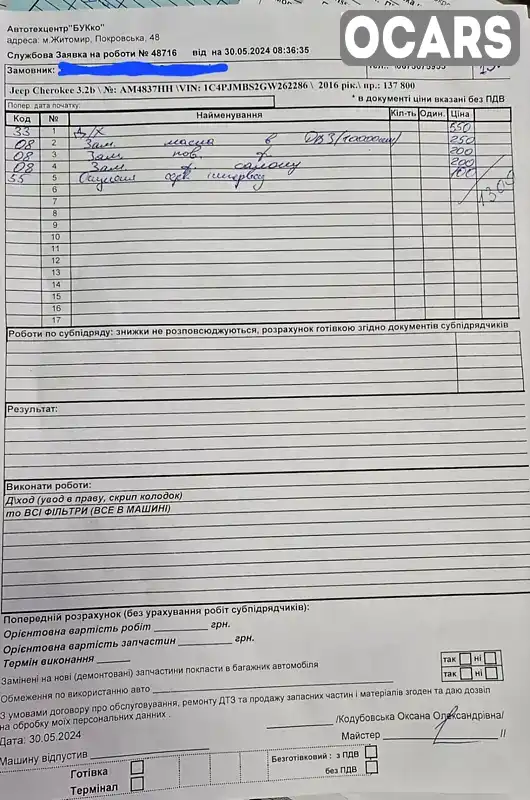 OCARS
Автотехцентр"БУКко"
адреса: м.Житомир, Покровська, 48
Службова Заявка на роботи № 48716 від на 30.05.2024 08:36:35
Замовник:
Jeep Cherokee 3.2b \ №: AM4837HH \VIN: 1C4PJMBS2GW262286 \ 2016 рік.\ пр.: 137 800
Попер. дата початку:
* в документі ціни вказані без ПДВ
Код № Найменування Кіл-ть Один. Ціна
33 1 Д/Х 550
08 2 Зам. масла в ДВЗ (10000км) 250
08 3 Зам. пов. ф 200
08 4 Зам. ф салону 200
55 5 інтервалу 100
1300
6
7
8
9
10
11
12
13
14
15
16
17
Роботи по субпідряду: знижки не розповсюджуються, розрахунок готівкою згідно документів субпідрядчиків
Результат:
Виконати роботи:
Д\ход (увод в праву, скрип колодок)
то ВСІ ФІЛЬТРИ (ВСЕ В МАШИНІ)
Попередній розрахунок (без урахування робіт субпідрядчиків):
Орієнтовна вартість робіт грн.
Орієнтовна вартість запчастин грн.
Термін виконання
Замінені на нові (демонтовані) запчастини покласти в багажник автомобіля так ні
Обмеження по використанню авто так ні
З умовами договору про обслуговування, ремонту ДТЗ та продажу запасних частин і матеріалів згоден та даю дозвіл
на обробку моїх персональних данних .
/Кодубовська Оксана Олександрівна/
Дата: 30.05.2024
Майстер //
Машину відпустив
Готівка
Термінал
Безготівковий : з ПДВ
без ПДВ